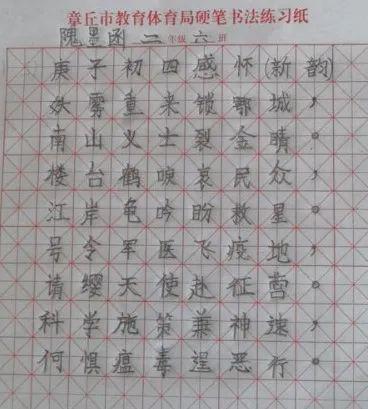 章丘市教育体育局硬笔书法练习纸
隗墨函 二 年级 六 班
庚子初四感怀(新韵)
妖雾重来锁鄂城,
南山义士裂金睛。
楼台鹤唳哀民众,
江岸龟吟盼救星。
号令军医飞疫地,
请缨天使赴征营。
科学施策兼神速,
何惧瘟毒逞恶行。